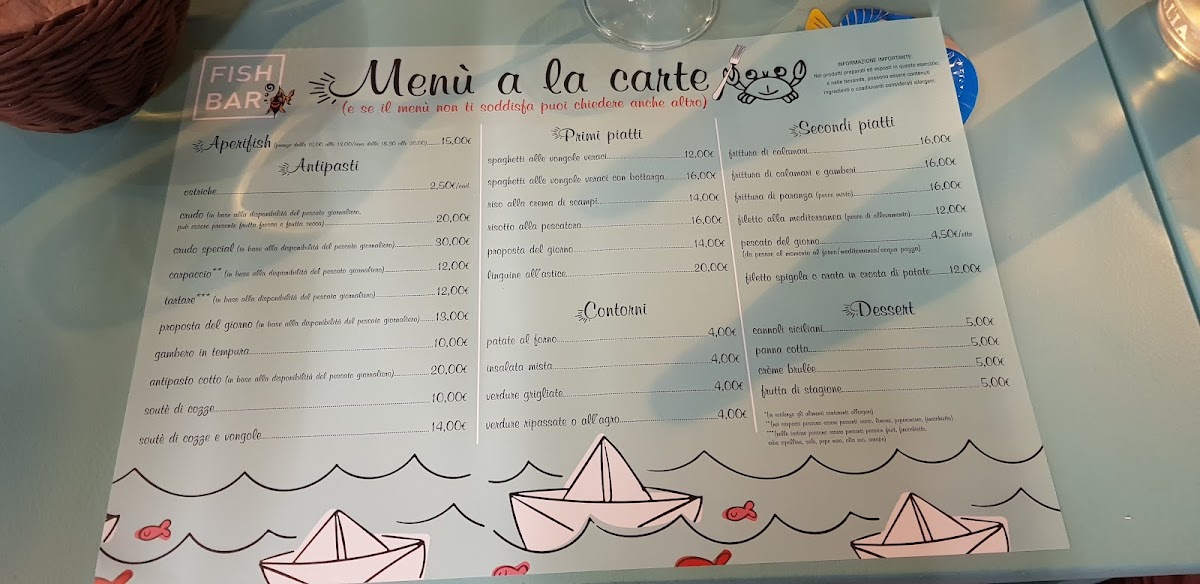 FISH
BAR
Menù a la carte
(e se il menù non ti soddisfa puoi chiedere anche altro)
INFORMAZIONE IMPORTANTE:
Nei prodotti preparati ed esposti in questo esercizio,
e nelle bevande, possono essere contenuti
ingredienti o coadiuvanti considerati allergeni.
Aperifish 15,00€
Antipasti
ostriche 2,50€/cad.
crudo (in base alla disponibilità del pescato giornaliero,
può essere presente frutta fresca e frutta secca) 20,00€
crudo special (in base alla disponibilità del pescato giornaliero) 30,00€
carpaccio** (in base alla disponibilità del pescato giornaliero) 12,00€
tartare*** (in base alla disponibilità del pescato giornaliero) 12,00€
proposta del giorno (in base alla disponibilità del pescato giornaliero) 13,00€
gambero in tempura 10,00€
antipasto cotto (in base alla disponibilità del pescato giornaliero) 20,00€
soutè di cozze 10,00€
soutè di cozze e vongole 14,00€
Primi piatti
spaghetti alle vongole veraci 12,00€
spaghetti alle vongole veraci con bottarga 16,00€
riso alla crema di scampi 14,00€
risotto alla pescatora 16,00€
proposta del giorno 14,00€
linguine all'astice 20,00€
Contorni
patate al forno 4,00€
insalata mista 4,00€
verdure grigliate 4,00€
verdure ripassate o all'agro 4,00€
Secondi piatti
frittura di calamari 16,00€
frittura di calamari e gamberi 16,00€
frittura di paranza (pesce misto) 16,00€
filetto alla mediterranea (pesce di allevamento) 12,00€
pescato del giorno 4,50€/etto
(da pesare al momento al forno/mediterranea/acqua pazza)
filetto spigola o orata in crosta di patate 12,00€
Dessert
cannoli siciliani 5,00€
panna cotta 5,00€
crème brulée 5,00€
frutta di stagione 5,00€